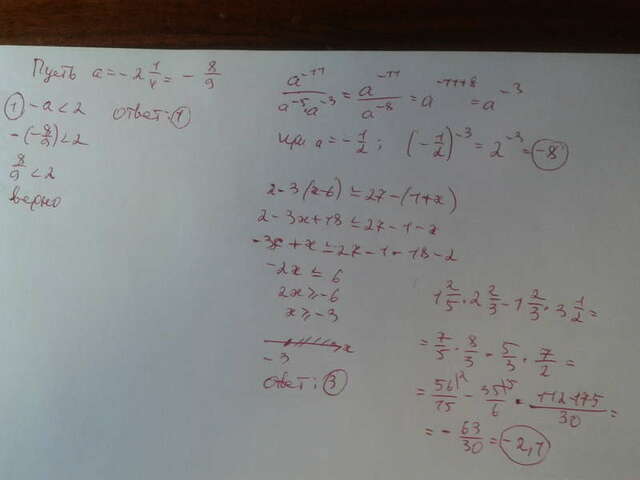 Пусть a = -2 1/4 = - 8/9
① -a < 2 ответ: ①
-(-8/9) < 2
8/9 < 2
верно
a^-11 / a^-5 · a^-3 = a^-11 / a^-8 = a^-11+8 = a^-3
при a = - 1/2; (-1/2)^-3 = 2^-3 = -8
2 - 3(x-6) ≤ 27 - (1+x)
2 - 3x + 18 ≤ 27 - 1 - x
-3x + x ≤ 27 - 1 - 18 - 2
-2x ≤ 6
2x ≥ -6
x ≥ -3
-3 x
ответ: ③
1 2/5 · 2 2/3 - 1 2/3 · 3 1/2 =
= 7/5 · 8/3 - 5/3 · 7/2 =
= 56/15 - 35/6 = 112-175 / 30 =
= - 63/30 = -2,1